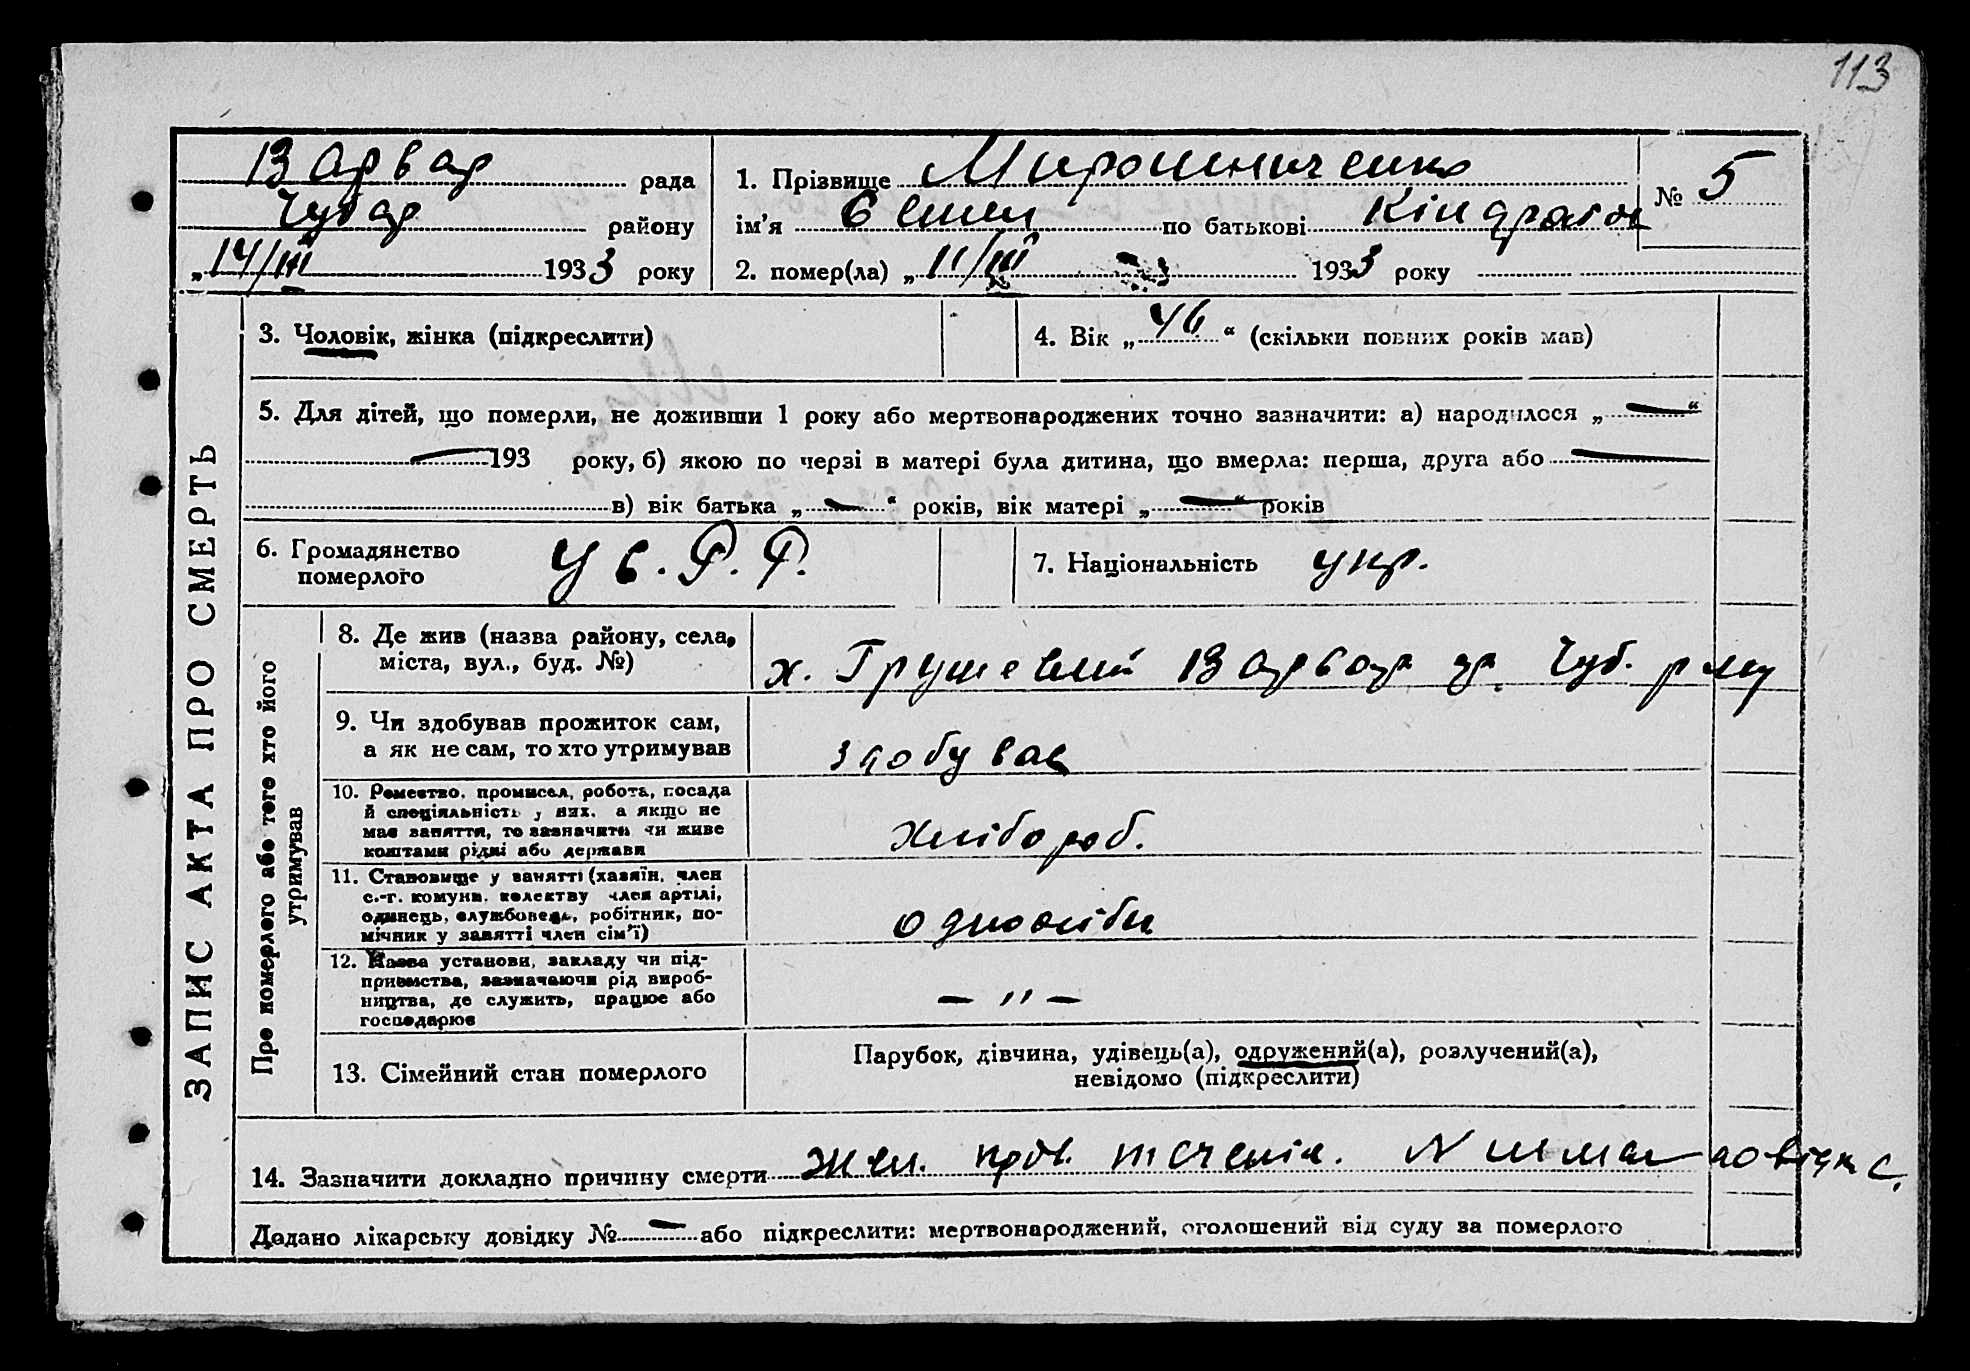 113
Варвар рада
Чубар району
„14/III 1933 року
1. Прізвище Мирошниченко
ім'я Семен по батькові Кіндратов
№ 5
2. помер(ла) „11/III 1933 року
ЗАПИС АКТА ПРО СМЕРТЬ
3. Чоловік, жінка (підкреслити)
4. Вік „46“ (скільки повних років мав)
5. Для дітей, що померли, не доживши 1 року або мертвонароджених точно зазначити: а) народилося „—“
— 193 року, б) якою по черзі в матері була дитина, що вмерла: перша, друга або —
в) вік батька „—“ років, вік матері „—“ років
6. Громадянство
померлого
У С. Р. Р.
7. Національність укр.
Про померлого або того хто його
утримував
8. Де жив (назва району, села,
міста, вул., буд. №)
х. Грушевий Варвар Чуб. р-ну
9. Чи здобував прожиток сам,
а як не сам, то хто утримував
здобував
10. Ремество, промисел, робота, посада
й спеціяльність у них, а якщо не
має заняття, то зазначити чи живе
коштами рідні або держави
Хлібороб.
11. Становище у занятті (хазяїн, член
с.-г. комуни, колективу член артілі,
одинець, службовець, робітник, по-
мічник у занятті член сім'ї)
одноосібн
12. Назва установи, закладу чи під-
приємства, зазначаючи рід вироб-
ництва, де служить, працює або
господарює
— „ —
13. Сімейний стан померлого
Парубок, дівчина, удівець(а), одружений(а), розлучений(а),
невідомо (підкреслити)
14. Зазначити докладно причину смерти
Додано лікарську довідку № — або підкреслити: мертвонароджений, оголошений від суду за померлого